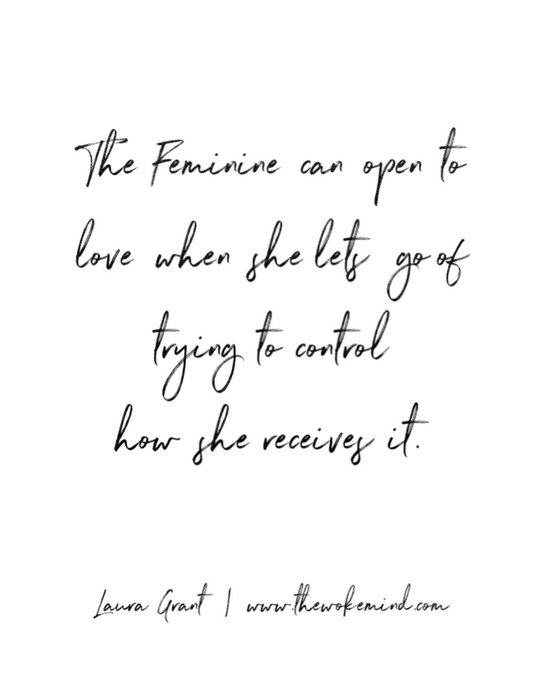 The Feminine can open to
love when she lets go of
trying to control
how she receives it.
Laura Grant | www.thewokemind.com